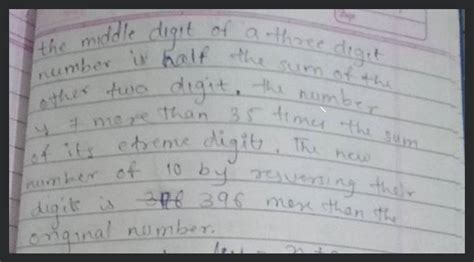 the middle digit of a three digit
number is half the sum of the
other two digit. the number
is 7 more than 35 times the sum
of its etreme digits. The new
number of 10 by resversing their
digits is 396 more than the
original number.